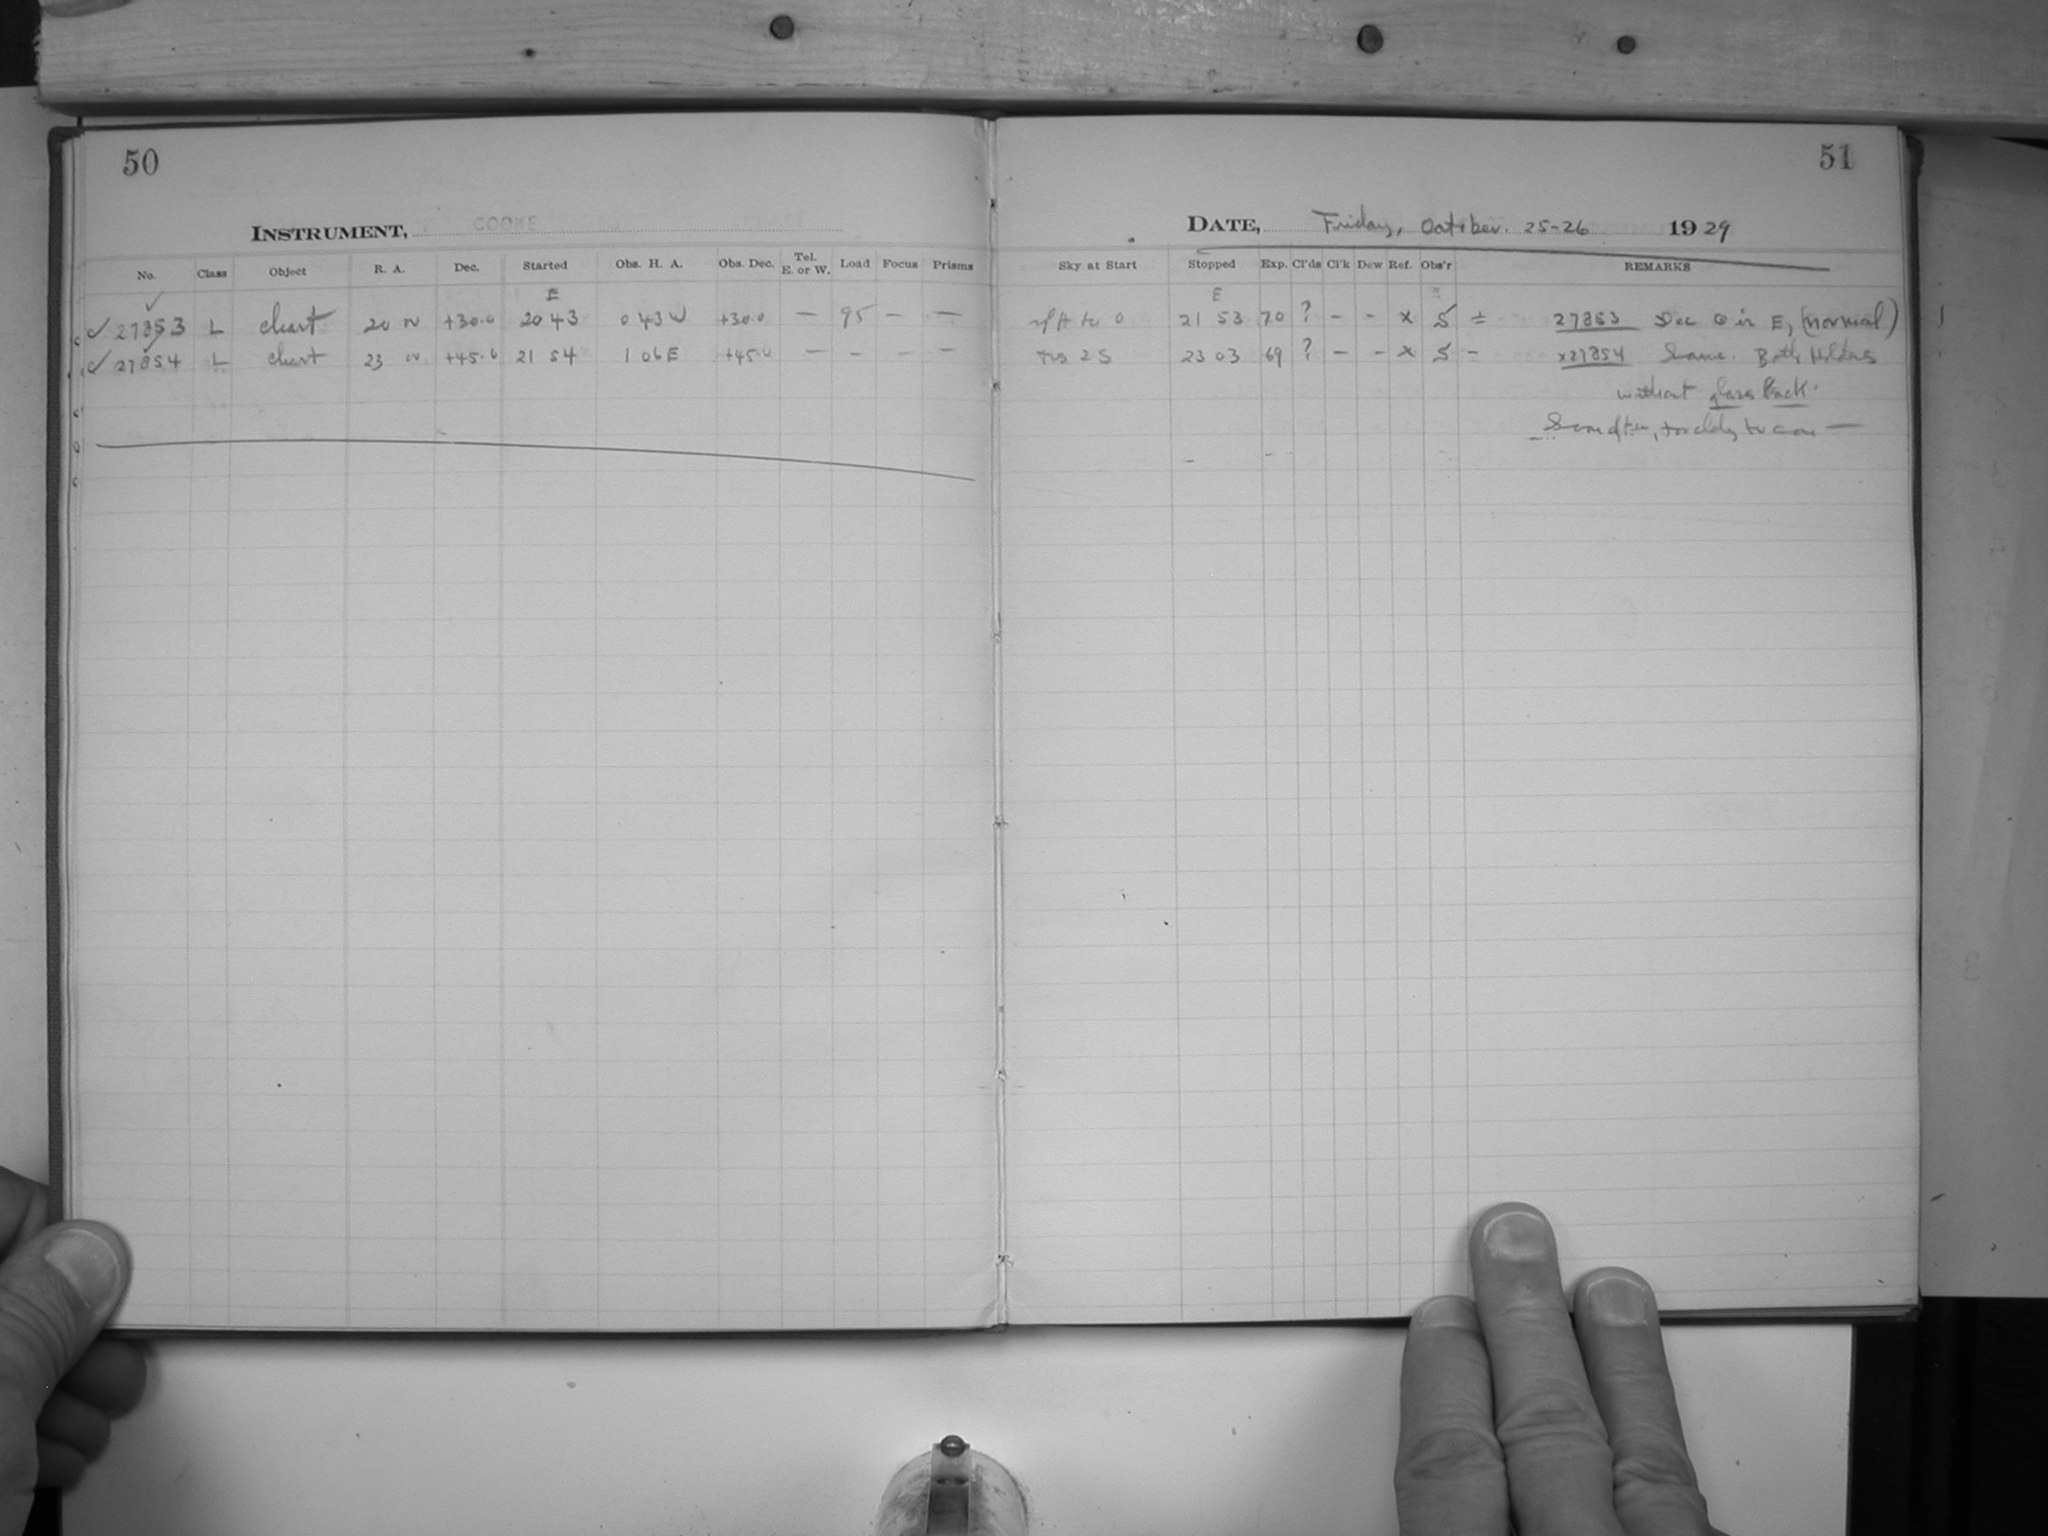 50
INSTRUMENT, COOKE
No. Class Object R. A. Dec. Started Obs. H. A. Obs. Dec. Tel. E. or W. Load Focus Prisms
E
✓ 27853 L chart 20 N +30.0 20 43 0 43 W +30.0 — 95 — —
✓ 27854 L chart 23 N +45.0 21 54 1 06 E +45.0 — — — —
51
DATE, Friday, October. 25-26 1929
Sky at Start Stopped Exp. Cl'ds Cl'k Dew Ref. Obs'r REMARKS
E
to 0 21 53 70 ? — — x S ± 27853 Dec in E, (normal)
2 S 23 03 69 ? — — x S — x27854 Same. Both Holders
without glass back.
Soon after, to